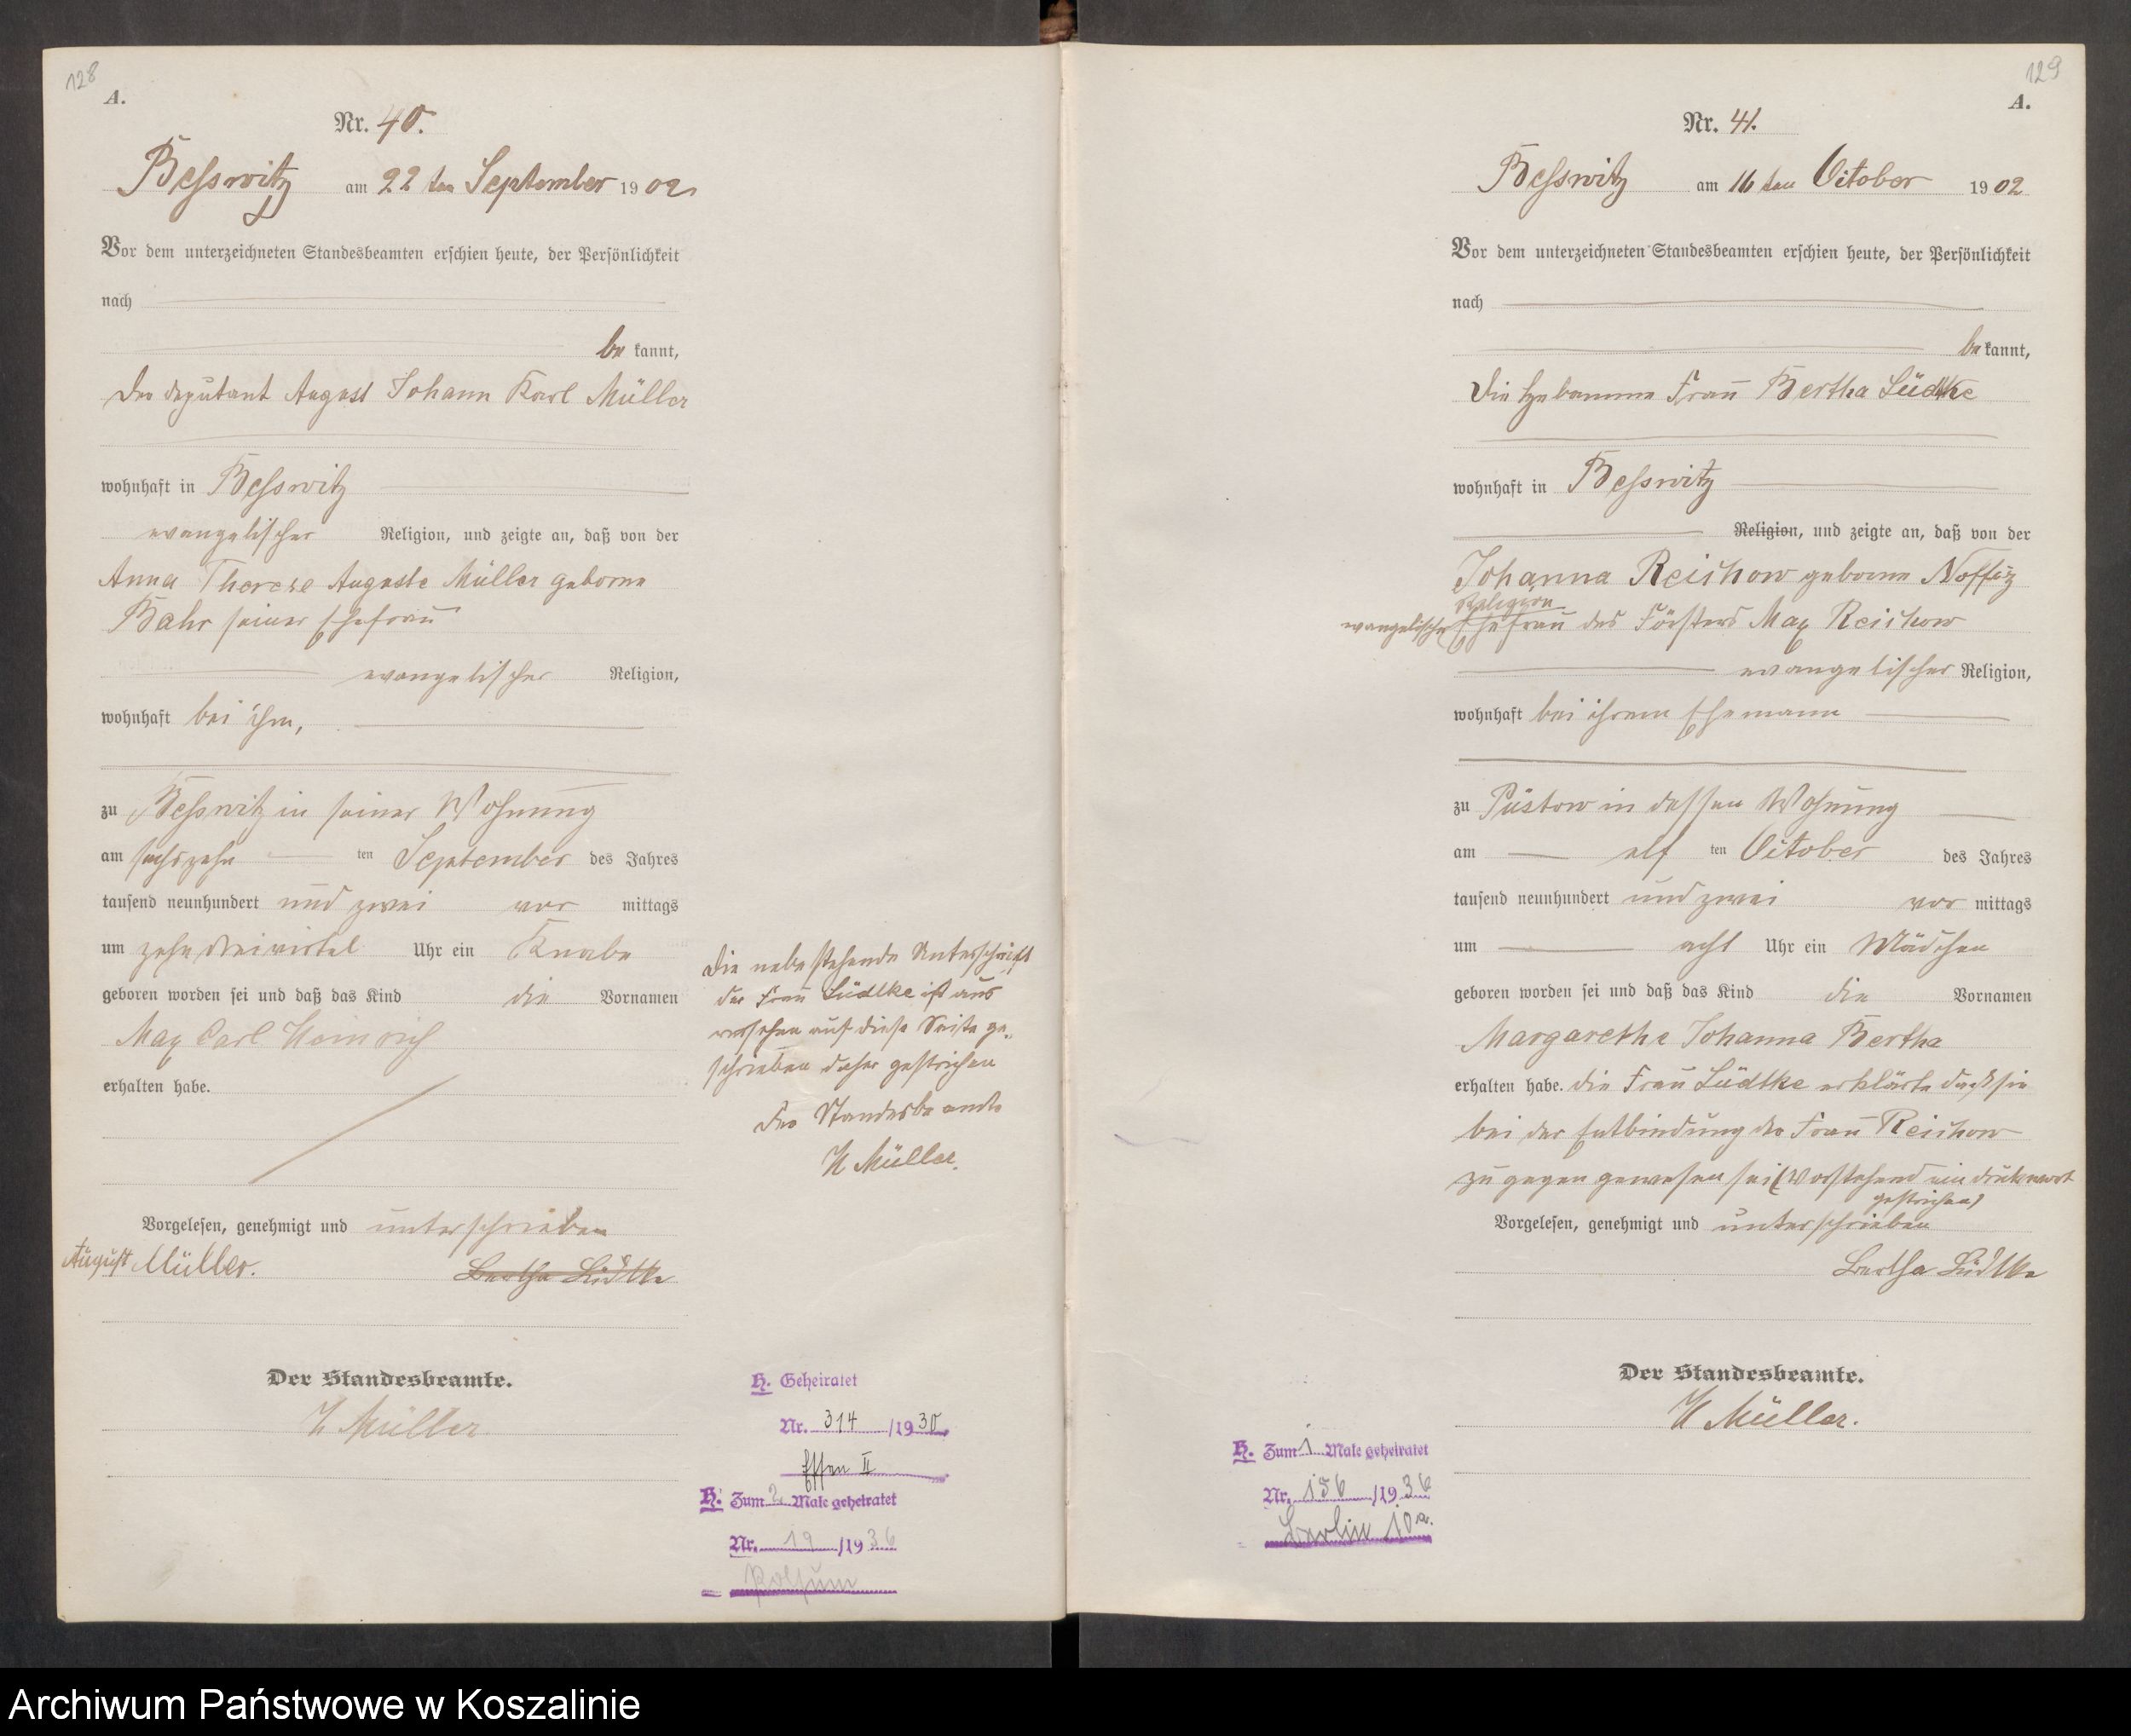 128
A.
Nr. 40.
Besswitz am 22 ten September 1902
Vor dem unterzeichneten Standesbeamten erschien heute, der Persönlichkeit
nach
be kannt,
Der Deputant August Johann Karl Müller
wohnhaft in Besswitz
evangelischer Religion, und zeigte an, daß von der
Anna Therese Auguste Müller geborne
Bahr seiner Ehefrau
evangelischer Religion,
wohnhaft bei ihm,
zu Besswitz in seiner Wohnung
am sechszehn ten September des Jahres
tausend neunhundert und zwei vor mittags
um zehn dreiviertel Uhr ein Knabe
geboren worden sei und daß das Kind die Vornamen
Max Carl Heinrich
erhalten habe.
Vorgelesen, genehmigt und unterschrieben
August Müller.
Bertha Lüdtke
Der Standesbeamte.
H Müller
Die nebenstehende Unterschrift
der Frau Lüdtke ist aus
versehen auf diese Seite ge-
schrieben daher gestrichen
Der Standesbeamte
H Müller.
H. Geheiratet
Nr. 314 /1930
Essen II
H. Zum 2. Male geheiratet
Nr. 19 /1936
129
A.
Nr. 41.
Besswitz am 16 ten October 1902
Vor dem unterzeichneten Standesbeamten erschien heute, der Persönlichkeit
nach
be kannt,
Die Hebamme Frau Bertha Lüdtke
wohnhaft in Besswitz
Religion, und zeigte an, daß von der
Johanna Reichow geborne Nofftz
Religion
evangelischer Ehefrau des Försters Max Reichow
evangelischer Religion,
wohnhaft bei ihrem Ehemann
zu Püstow in dessen Wohnung
am elf ten October des Jahres
tausend neunhundert und zwei vor mittags
um acht Uhr ein Mädchen
geboren worden sei und daß das Kind die Vornamen
Margarethe Johanna Bertha
erhalten habe. die Frau Lüdtke erklärte daß sie
bei der Entbindung der Frau Reichow
zugegen gewesen sei (Vorstehend ein Druckwort
gestrichen)
Vorgelesen, genehmigt und unterschrieben
Bertha Lüdtke
Der Standesbeamte.
H Müller.
H. Zum 1 Male geheiratet
Nr. 156 /1936
Berlin 10a.
Archiwum Państwowe w Koszalinie